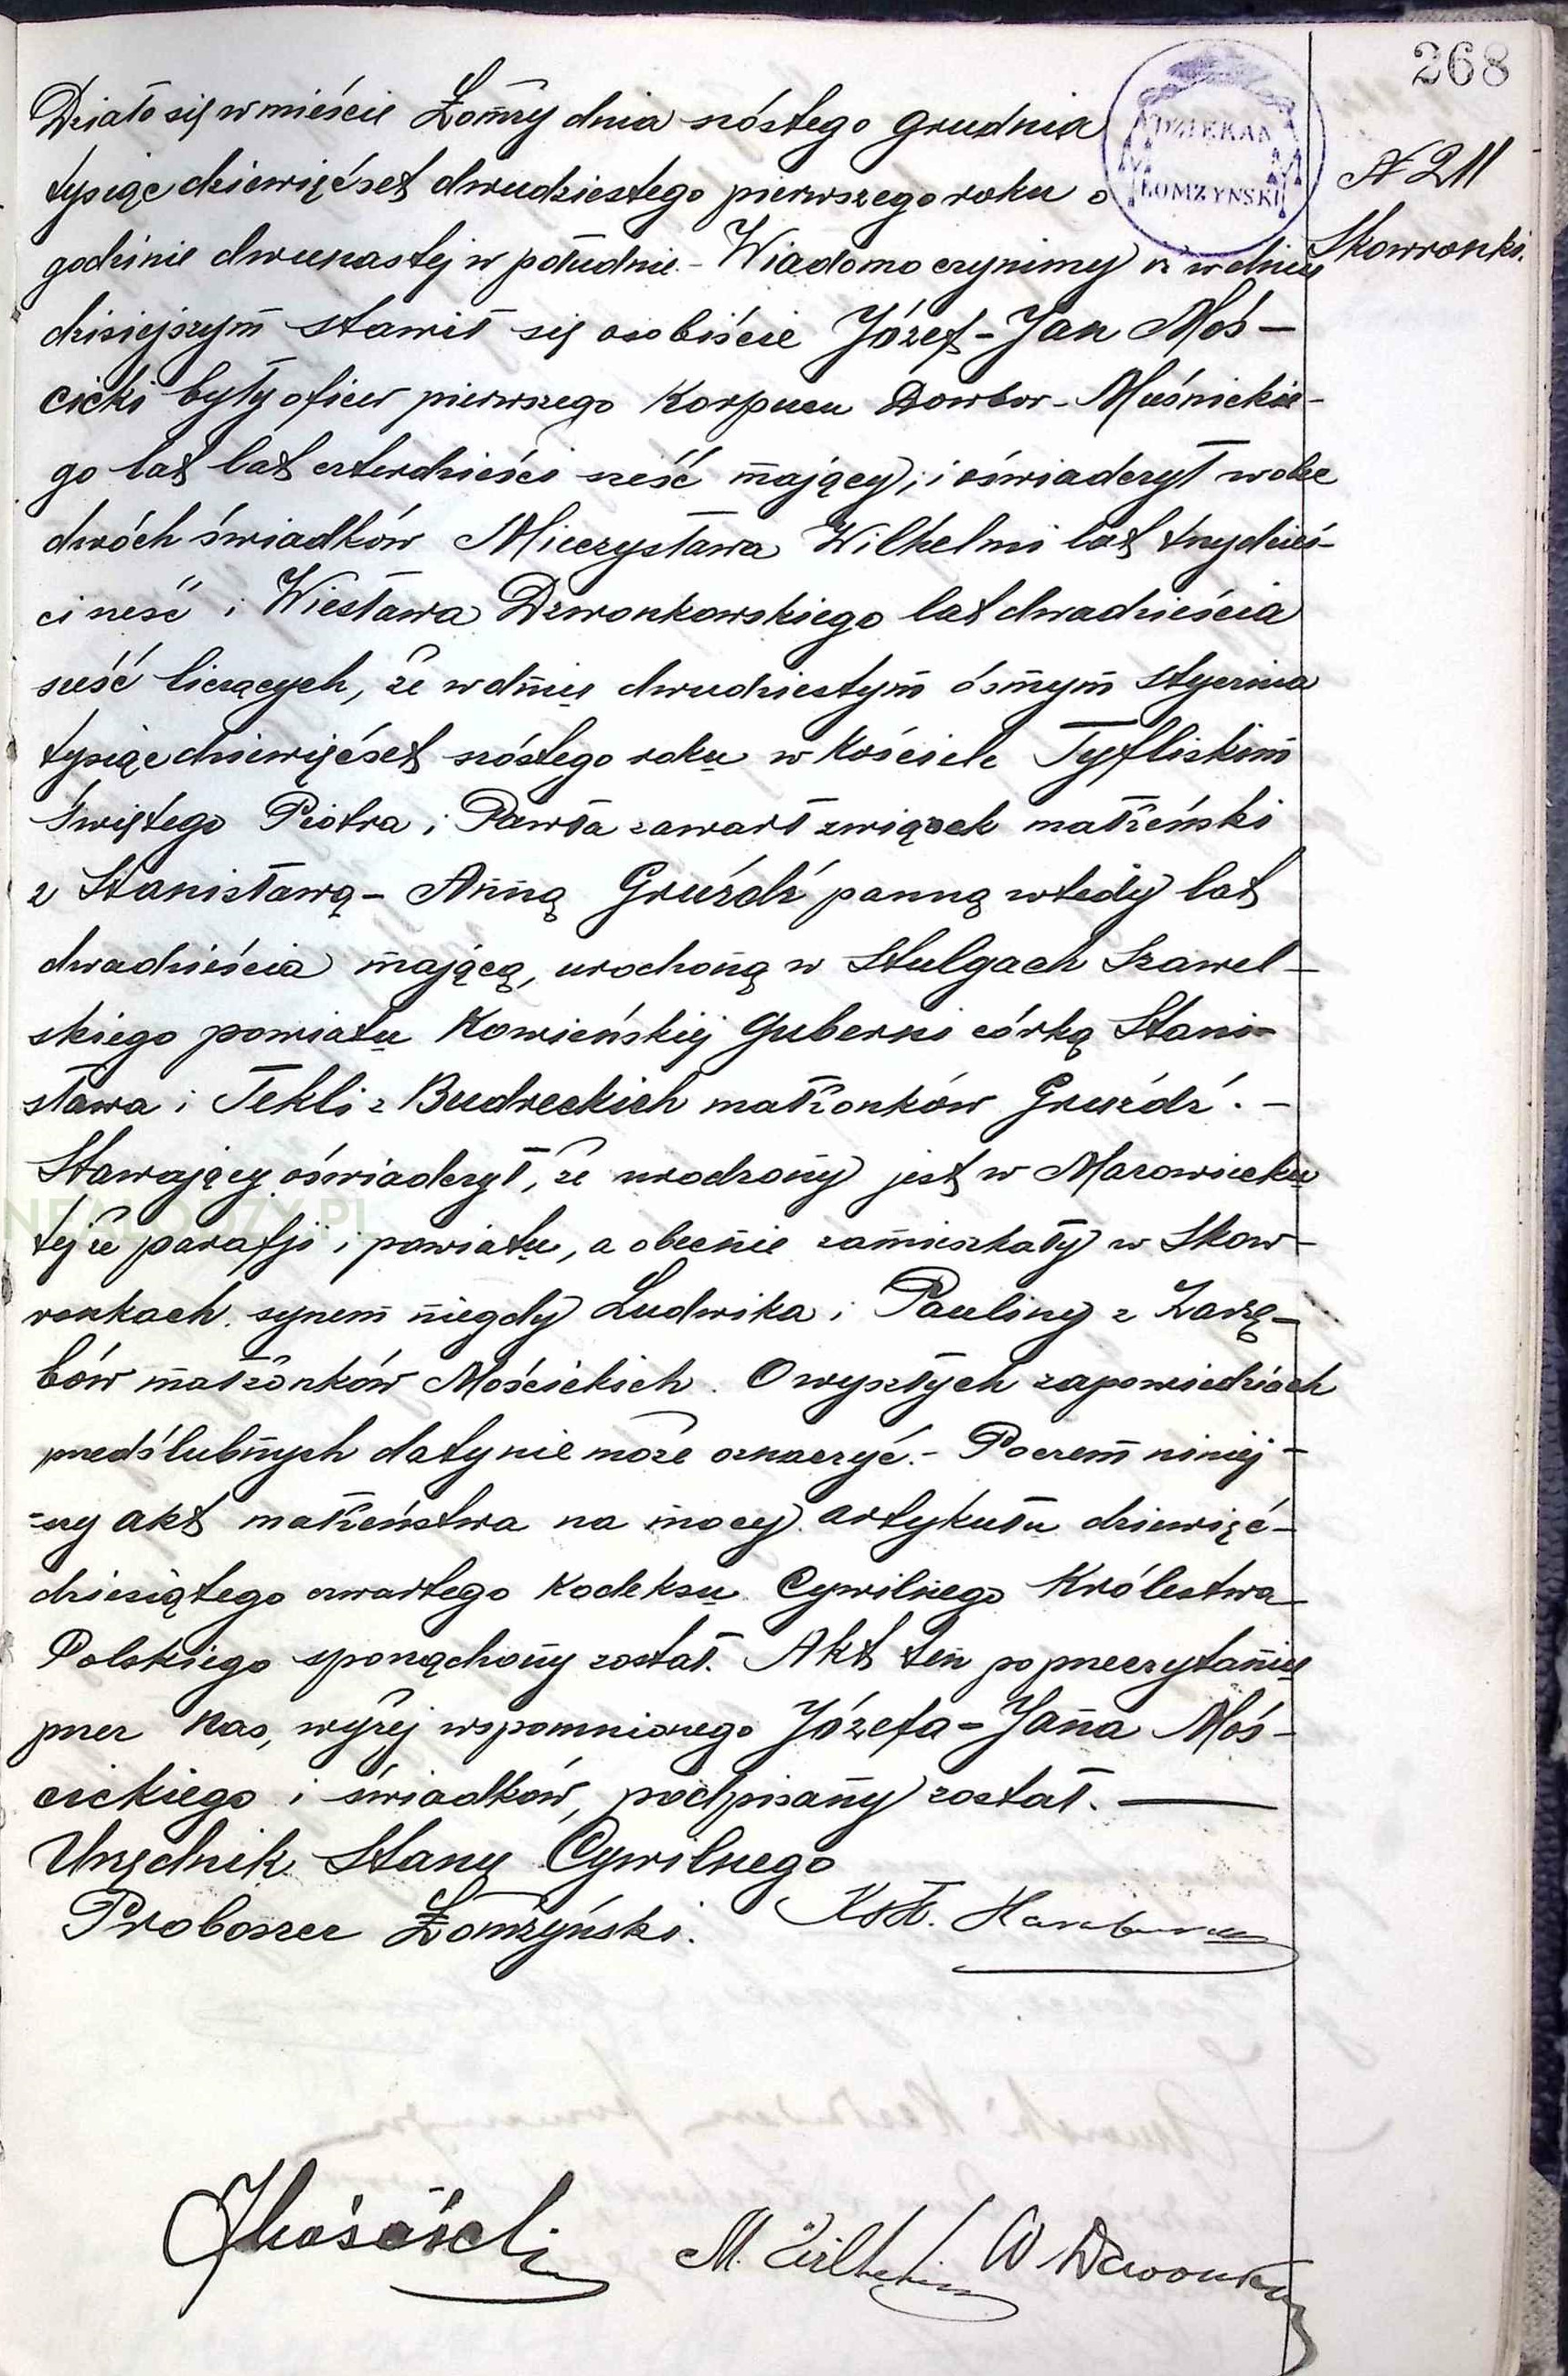 268
DZIEKAN
ŁOMŻYŃSKI
N 211
Skowronki.
Działo się w mieście Łomży dnia szóstego grudnia
tysiąc dziewięćset dwudziestego pierwszego roku o
godzinie dwunastej w południe. - Wiadomo czynimy iż w dniu
dzisiejszym stawił się osobiście Józef - Jan Moś-
cicki były oficer pierwszego Korpusu Dowbor - Muśnickie-
go lat lat czterdzieści sześć mający; i oświadczył wobec
dwóch świadków Mieczysława Wilhelmi lat trzydzieś-
ci sześć i Wiesława Dzwonkowskiego lat dwadzieścia
sześć liczących, że w dniu dwudziestym ósmym stycznia
tysiąc dziewięćset szóstego roku w Kościele Tyfliskim
Świętego Piotra i Pawła zawarł związek małżeński
z Stanisławą - Anną Gruźdź panną wtedy lat
dwadzieścia mającą, urodzoną w Stulgach Szawel-
skiego powiatu Kowieńskiej Guberni córką Stani-
sława i Tekli z Budreckich małżonków Gruźdź. -
Stawający oświadczył, że urodzony jest w Mazowiecku
tejże parafji i powiatu, a obecnie zamieszkały w Skow-
ronkach. synem niegdy Ludwika i Pauliny z Zarę-
bów małżonków Mościckich. O wyszłych zapowiedziach
przedślubnych daty nie może oznaczyć. - Poczem niniej-
-szy akt małżeństwa na mocy artykułu dziewięć-
dziesiątego czwartego Kodeksu Cywilnego Królestwa
Polskiego sporządzony został. Akt ten po przeczytaniu
przez Nas, wyżej wspomnionego Józefa - Jana Moś-
cickiego i świadków, podpisany został. —
Urzędnik Stanu Cywilnego
Proboszcz Łomżyński.
JMościcki
M. Wilhelmi W Dzwonkowski